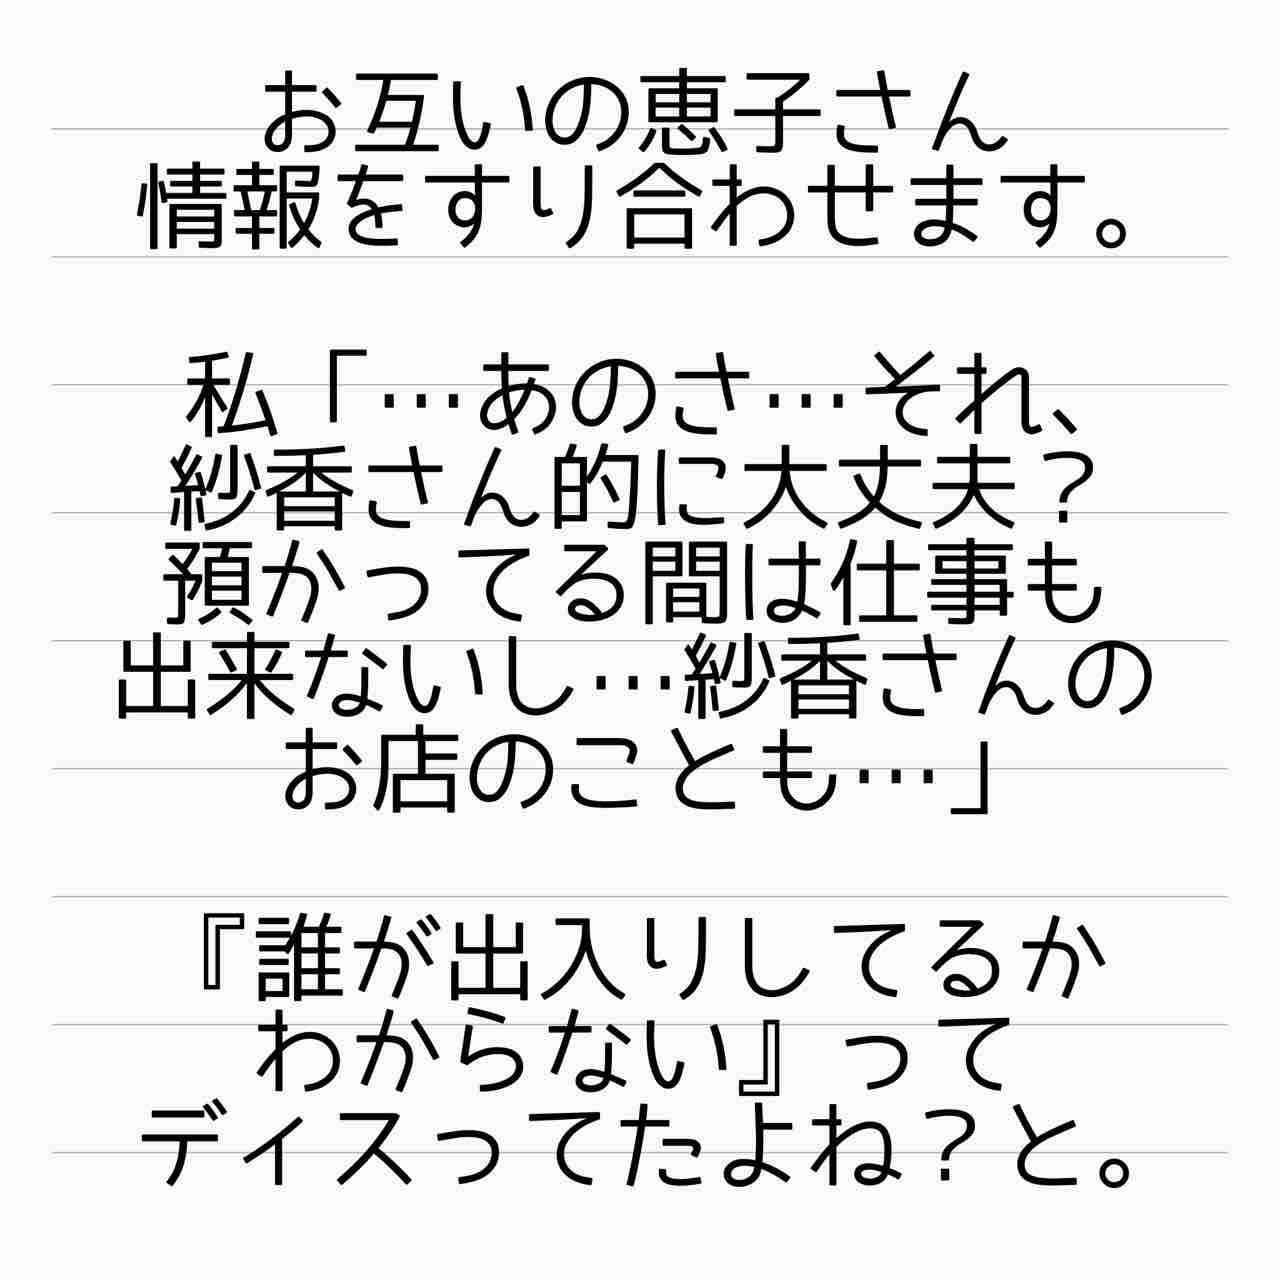 お互いの恵子さん
情報をすり合わせます。
私「…あのさ…それ、
紗香さん的に大丈夫？
預かってる間は仕事も
出来ないし…紗香さんの
お店のことも…」
『誰が出入りしてるか
わからない』って
ディスってたよね？と。